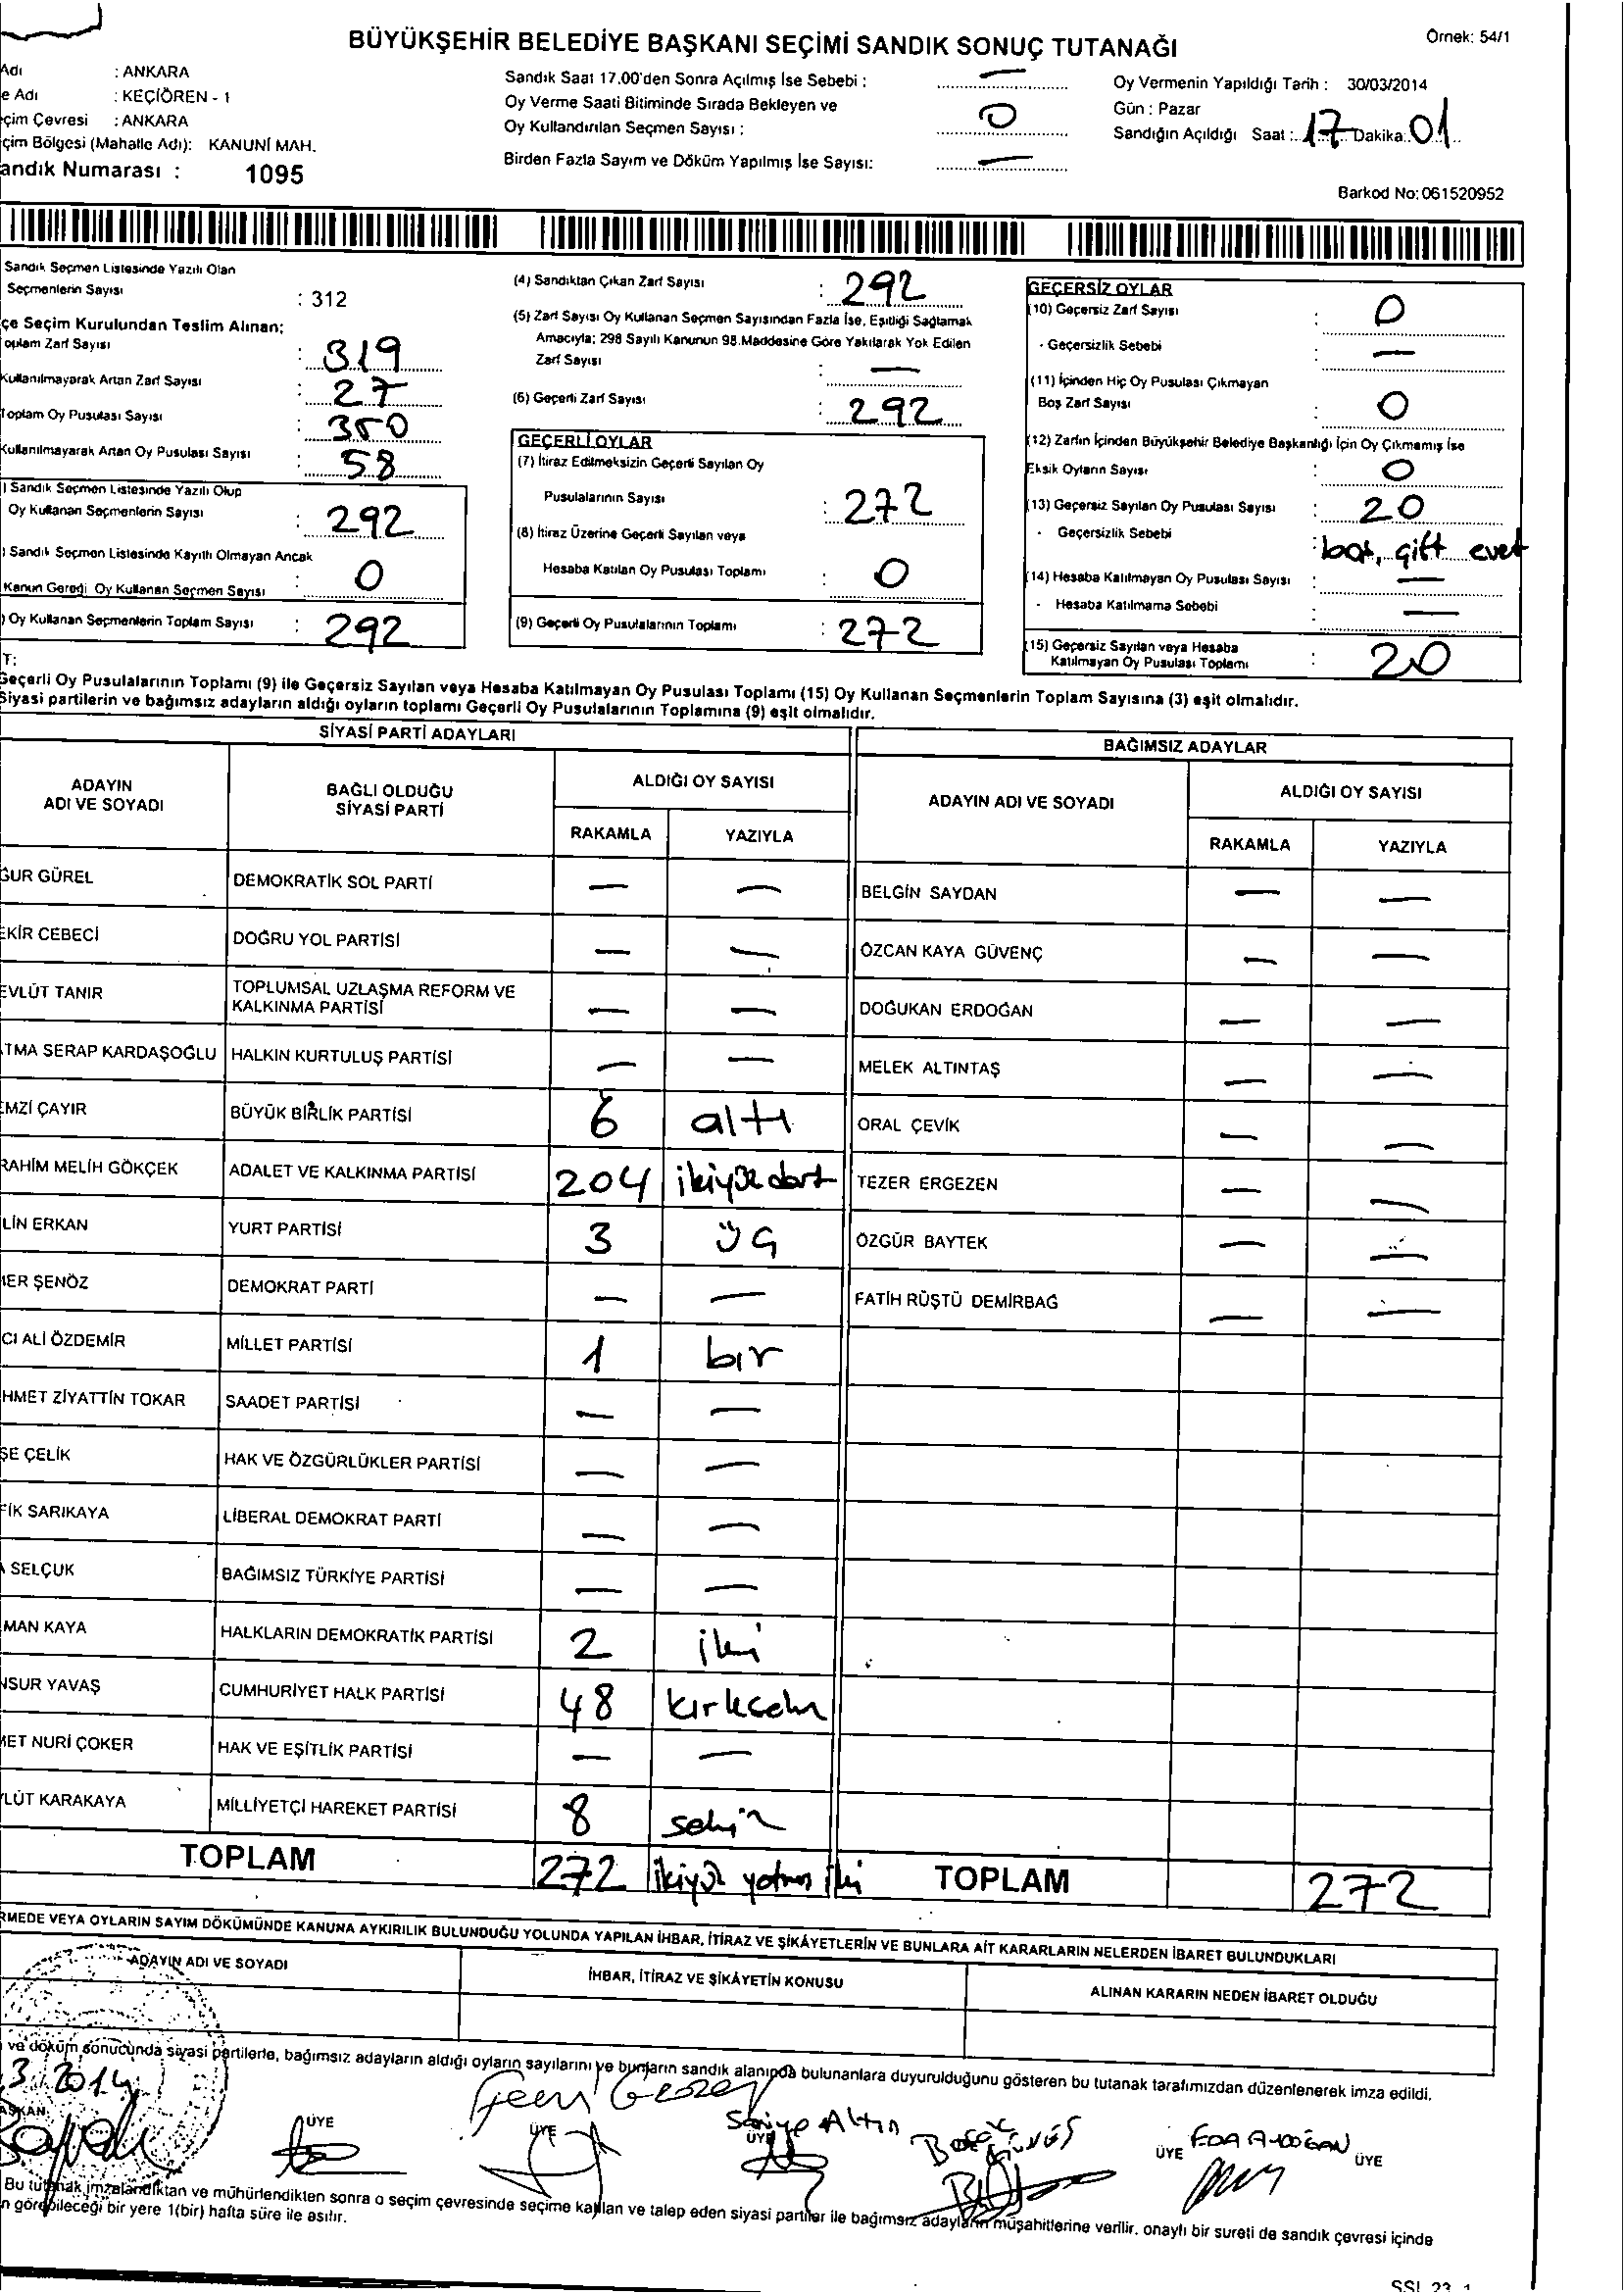 Örnek: 54/1
BÜYÜKŞEHİR BELEDİYE BAŞKANI SEÇİMİ SANDIK SONUÇ TUTANAĞI
Adı : ANKARA
e Adı : KEÇİÖREN - 1
çim Çevresi : ANKARA
çim Bölgesi (Mahalle Adı): KANUNİ MAH.
andık Numarası : 1095
Sandık Saat 17.00'den Sonra Açılmış İse Sebebi : —
Oy Verme Saati Bitiminde Sırada Bekleyen ve
Oy Kullandırılan Seçmen Sayısı : 0
Birden Fazla Sayım ve Döküm Yapılmış İse Sayısı: —
Oy Vermenin Yapıldığı Tarih : 30/03/2014
Gün : Pazar
Sandığın Açıldığı Saat : 17 Dakika: 01
Barkod No: 061520952
Sandık Seçmen Listesinde Yazılı Olan
Seçmenlerin Sayısı : 312
çe Seçim Kurulundan Teslim Alınan:
oplam Zarf Sayısı : 319
Kullanılmayarak Artan Zarf Sayısı : 27
Toplam Oy Pusulası Sayısı : 350
Kullanılmayarak Artan Oy Pusulası Sayısı : 58
) Sandık Seçmen Listesinde Yazılı Olup
Oy Kullanan Seçmenlerin Sayısı : 292
) Sandık Seçmen Listesinde Kayıtlı Olmayan Ancak
Kanun Gereği Oy Kullanan Seçmen Sayısı : 0
) Oy Kullanan Seçmenlerin Toplam Sayısı : 292
(4) Sandıktan Çıkan Zarf Sayısı : 292
(5) Zarf Sayısı Oy Kullanan Seçmen Sayısından Fazla İse, Eşitliği Sağlamak
Amacıyla; 298 Sayılı Kanunun 98.Maddesine Göre Yakılarak Yok Edilen
Zarf Sayısı : —
(6) Geçerli Zarf Sayısı : 292
GEÇERLİ OYLAR
(7) İtiraz Edilmeksizin Geçerli Sayılan Oy
Pusulalarının Sayısı : 272
(8) İtiraz Üzerine Geçerli Sayılan veya
Hesaba Katılan Oy Pusulası Toplamı : 0
(9) Geçerli Oy Pusulalarının Toplamı : 272
GEÇERSİZ OYLAR
(10) Geçersiz Zarf Sayısı : 0
- Geçersizlik Sebebi : —
(11) İçinden Hiç Oy Pusulası Çıkmayan
Boş Zarf Sayısı : 0
(12) Zarfın İçinden Büyükşehir Belediye Başkanlığı İçin Oy Çıkmamış İse
Eksik Oyların Sayısı : 0
(13) Geçersiz Sayılan Oy Pusulası Sayısı : 20
- Geçersizlik Sebebi : boş, çift evet
(14) Hesaba Katılmayan Oy Pusulası Sayısı : —
- Hesaba Katılmama Sebebi : —
(15) Geçersiz Sayılan veya Hesaba
Katılmayan Oy Pusulası Toplamı : 20
T:
Geçerli Oy Pusulalarının Toplamı (9) ile Geçersiz Sayılan veya Hesaba Katılmayan Oy Pusulası Toplamı (15) Oy Kullanan Seçmenlerin Toplam Sayısına (3) eşit olmalıdır.
Siyasi partilerin ve bağımsız adayların aldığı oyların toplamı Geçerli Oy Pusulalarının Toplamına (9) eşit olmalıdır.
SİYASİ PARTİ ADAYLARI
ADAYIN ADI VE SOYADI BAĞLI OLDUĞU SİYASİ PARTİ ALDIĞI OY SAYISI
RAKAMLA YAZIYLA
GUR GÜREL DEMOKRATİK SOL PARTİ — —
EKİR CEBECİ DOĞRU YOL PARTİSİ — —
EVLÜT TANIR TOPLUMSAL UZLAŞMA REFORM VE KALKINMA PARTİSİ — —
TMA SERAP KARDAŞOĞLU HALKIN KURTULUŞ PARTİSİ — —
EMZİ ÇAYIR BÜYÜK BİRLİK PARTİSİ 6 altı
RAHİM MELİH GÖKÇEK ADALET VE KALKINMA PARTİSİ 204 ikiyüzdört
LİN ERKAN YURT PARTİSİ 3 üç
MER ŞENÖZ DEMOKRAT PARTİ — —
CI ALİ ÖZDEMİR MİLLET PARTİSİ 1 bir
HMET ZİYATTİN TOKAR SAADET PARTİSİ — —
ŞE ÇELİK HAK VE ÖZGÜRLÜKLER PARTİSİ — —
FİK SARIKAYA LİBERAL DEMOKRAT PARTİ — —
A SELÇUK BAĞIMSIZ TÜRKİYE PARTİSİ — —
MAN KAYA HALKLARIN DEMOKRATİK PARTİSİ 2 iki
NSUR YAVAŞ CUMHURİYET HALK PARTİSİ 48 kırksekiz
MET NURİ ÇOKER HAK VE EŞİTLİK PARTİSİ — —
LÜT KARAKAYA MİLLİYETÇİ HAREKET PARTİSİ 8 sekiz
TOPLAM 272 ikiyüz yetmiş iki
BAĞIMSIZ ADAYLAR
ADAYIN ADI VE SOYADI ALDIĞI OY SAYISI
RAKAMLA YAZIYLA
BELGİN SAYDAN — —
ÖZCAN KAYA GÜVENÇ — —
DOĞUKAN ERDOĞAN — —
MELEK ALTINTAŞ — —
ORAL ÇEVİK — —
TEZER ERGEZEN — —
ÖZGÜR BAYTEK — —
FATİH RÜŞTÜ DEMİRBAĞ — —
TOPLAM 272
RMEDE VEYA OYLARIN SAYIM DÖKÜMÜNDE KANUNA AYKIRILIK BULUNDUĞU YOLUNDA YAPILAN İHBAR, İTİRAZ VE ŞİKÂYETLERİN VE BUNLARA AİT KARARLARIN NELERDEN İBARET BULUNDUKLARI
ADAYIN ADI VE SOYADI İHBAR, İTİRAZ VE ŞİKÂYETİN KONUSU ALINAN KARARIN NEDEN İBARET OLDUĞU
ve döküm sonucunda siyasi partilerle, bağımsız adayların aldığı oyların sayılarını ve bunların sandık alanında bulunanlara duyurulduğunu gösteren bu tutanak tarafımızdan düzenlenerek imza edildi.
3/2014
AŞKAN ÜYE ÜYE ÜYE ÜYE ÜYE
Saniye Altın
EDA AYDOĞAN
Bu tutanak imzalandıktan ve mühürlendikten sonra o seçim çevresinde seçime katılan ve talep eden siyasi partiler ile bağımsız adayların müşahitlerine verilir, onaylı bir sureti de sandık çevresi içinde
n görebileceği bir yere 1(bir) hafta süre ile asılır.
SSI 23 1